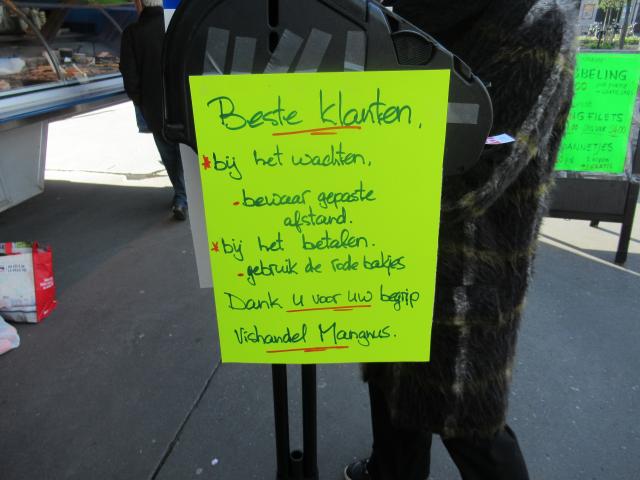 Beste klanten,
* bij het wachten,
- bewaar gepaste
afstand.
* bij het betalen.
- gebruik de rode bakjes
Dank u voor uw begrip
Vishandel Mangnus.
BELING
FILETS
ANNETJES